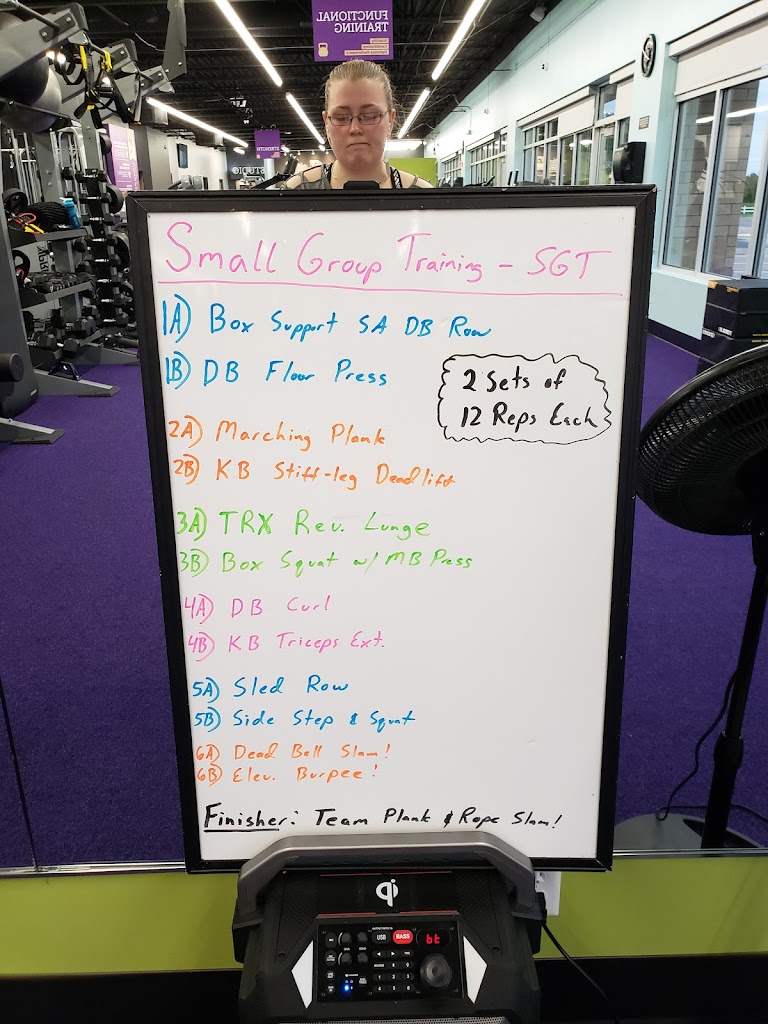 FUNCTIONAL
TRAINING
STRENGTH
STUDIO
Small Group Training - SGT
1A) Box Support SA DB Row
1B) DB Floor Press
2 Sets of
12 Reps Each
2A) Marching Plank
2B) KB Stiff-leg Deadlift
3A) TRX Rev. Lunge
3B) Box Squat w/ MB Press
4A) DB Curl
4B) KB Triceps Ext.
5A) Sled Row
5B) Side Step & Squat
6A) Dead Ball Slam!
6B) Elev. Burpee!
Finisher: Team Plank & Rope Slam!
qi
USB
BASS
bt